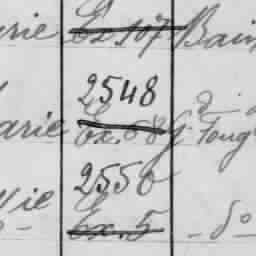 rie Ex 107 Bain
2548
arie Ex. 68 G. Foug
2550
vie Ex. 5 - do